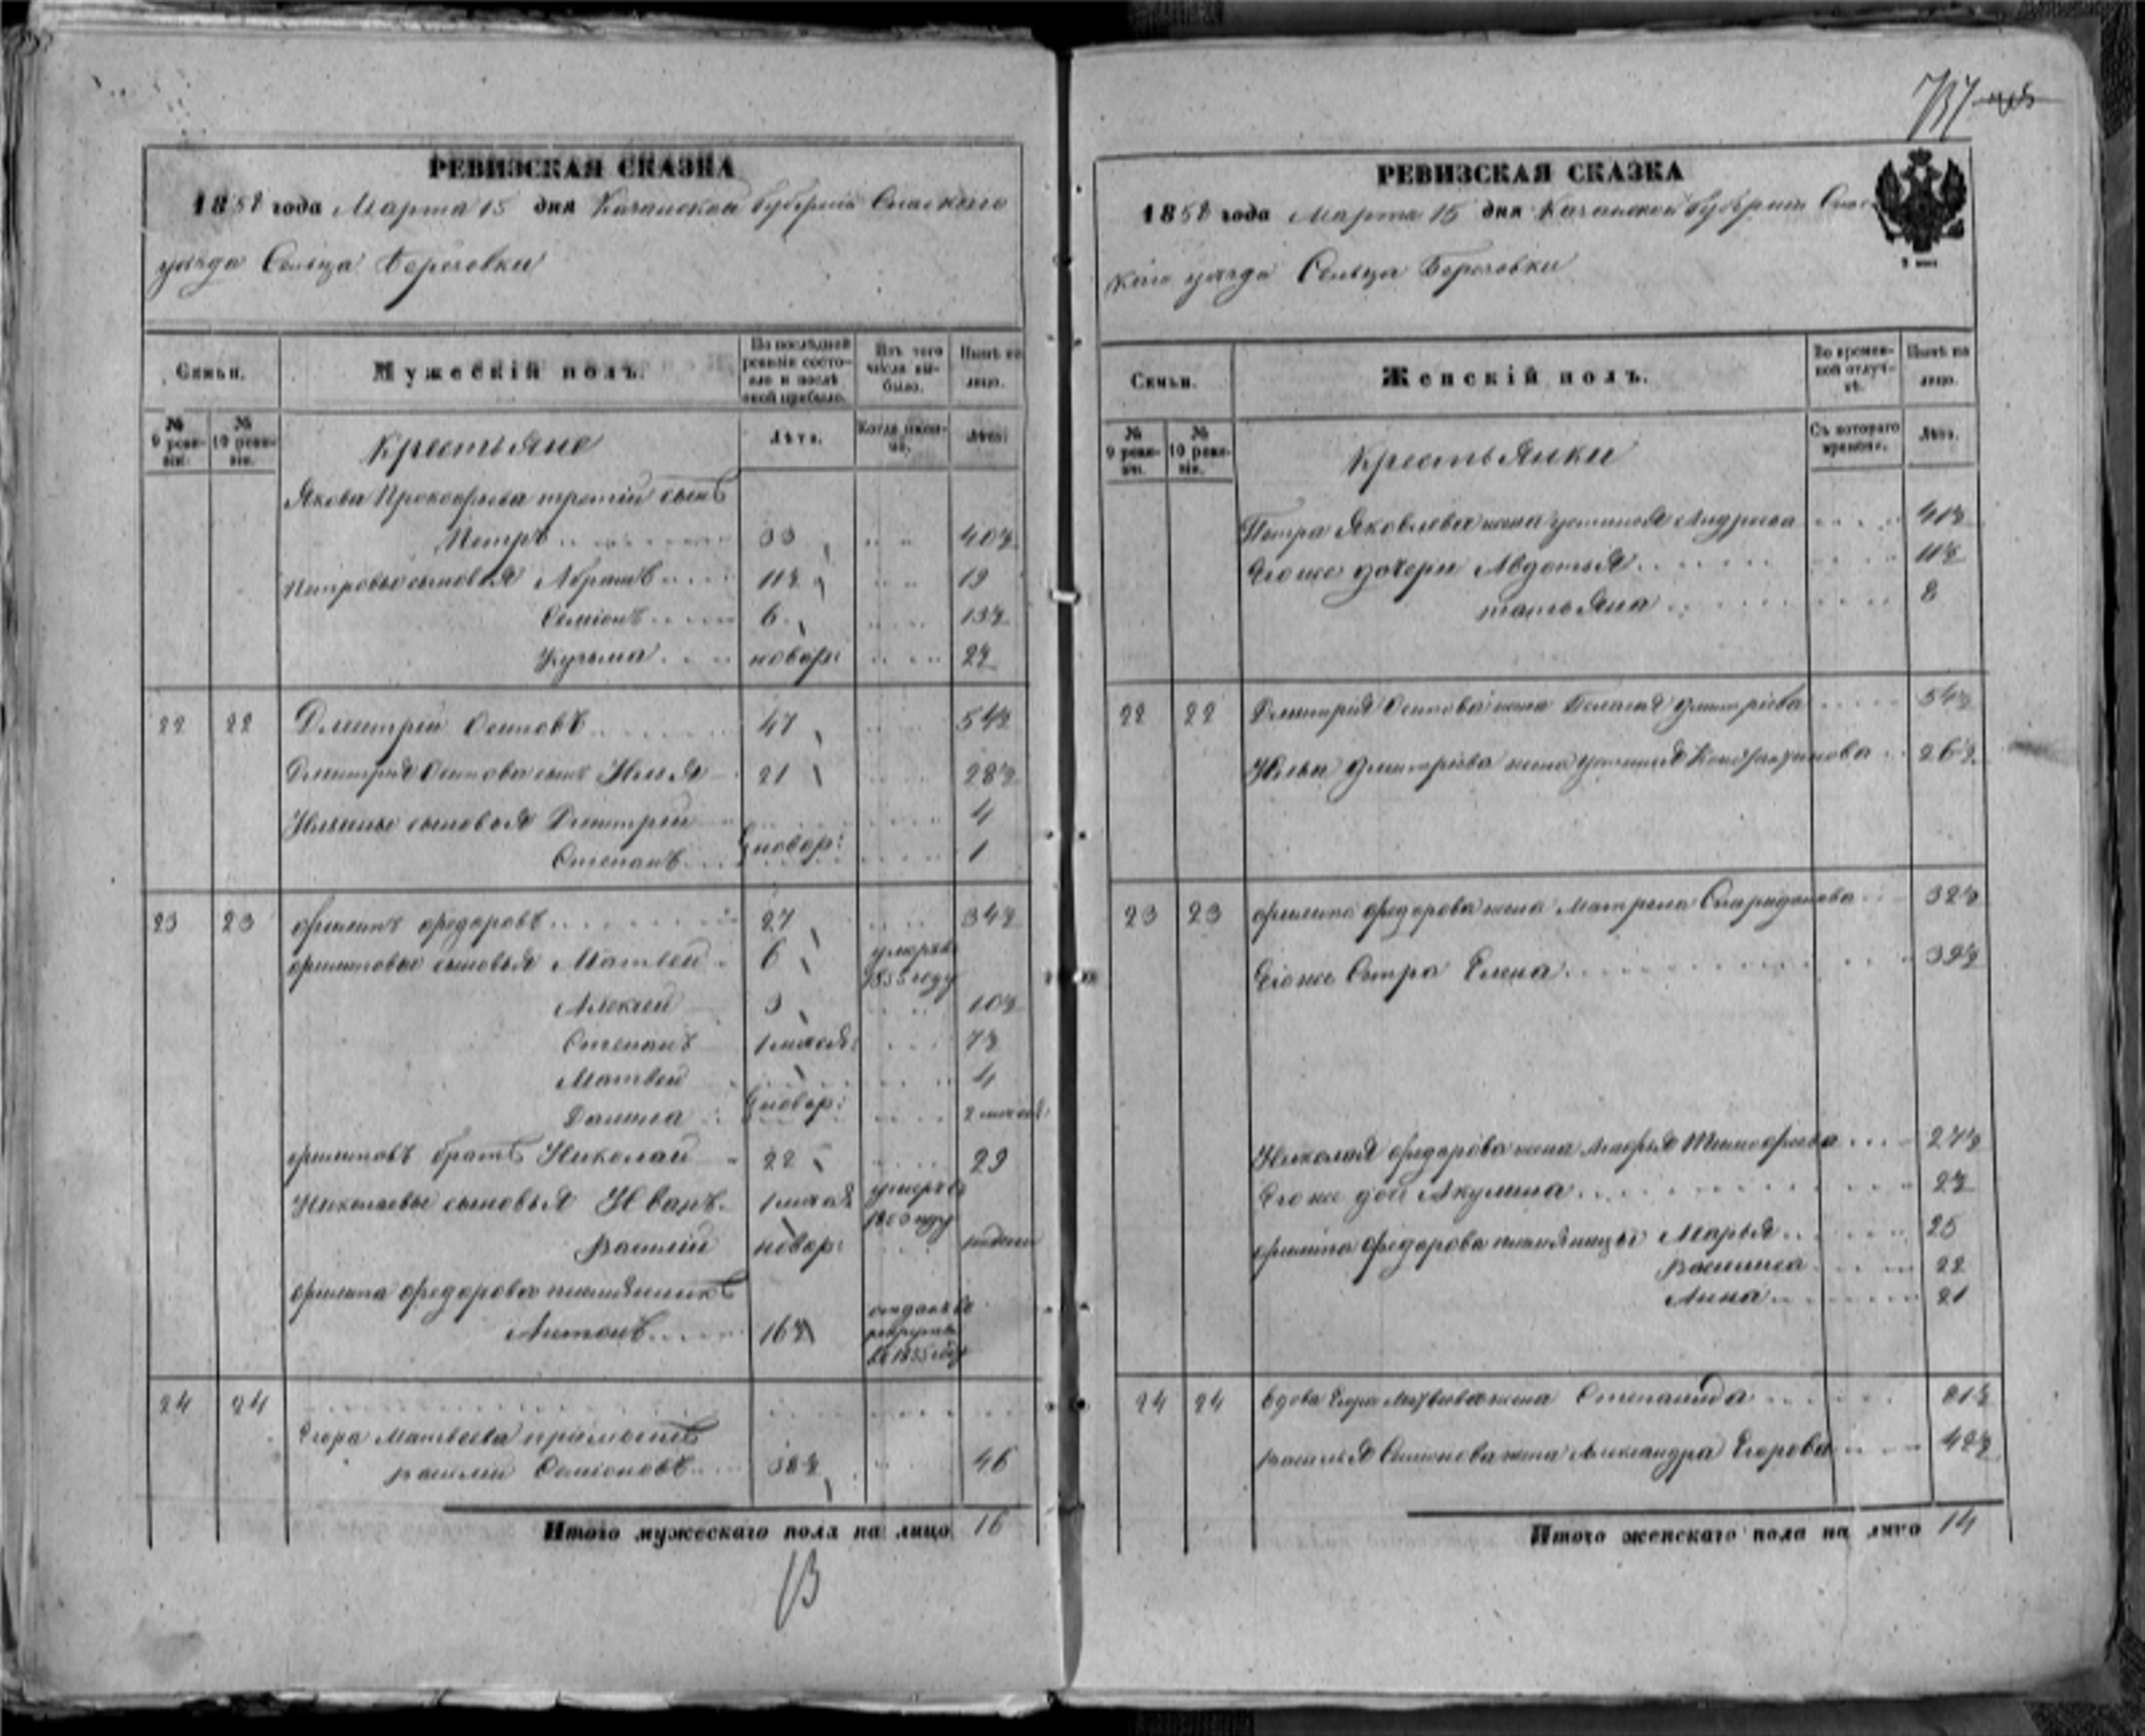 737
РЕВИЗСКАЯ СКАЗКА
1858 года Марта 15 дня Казанской Губернiи Спаскаго
уѣзда Сельца Березовки
Семьи.
Мужескiй полъ.
По послѣдней ревизiи состояло и послѣ оной прибыло.
Изъ того числа выбыло.
Нынѣ на лицо.
№ 9 ревизiи.
№ 10 ревизiи.
Крестьяне
Лѣта.
Когда именно.
Лѣта.
Якова Прокофьева третiй сынъ
Петръ 33 40½
Петровы сыновья Абрамъ 11½ 19
Семiонъ 6 13½
Кузьма новор: 2½
22 22 Дмитрей Осиповъ 47 54½
Дмитрiя Осипова сынъ Илья 21 28½
Ильины сыновья Дмитрей 4
новор:
Степанъ 1
23 23 Филипъ Федоровъ 27 34½
Филиповы сыновья Матвей 6 умеръ въ 1855 году
Алексей 3 10½
Степанъ 1 месяя: 7½
Матвей 4
новор:
Данила 2 месяя:
Филиповъ братъ Николай 22 29
Николаевы сыновья Иванъ 1 месяя умеръ въ 1850 году
Василiй новор: недели
Филипа Федорова племянникъ
Антонъ 16½ отданъ въ рекруты въ 1855 году
24 24
Егора Матвеева прiемышъ
Василiй Семiоновъ 38½ 46
Итого мужескаго пола на лицо 16
13
РЕВИЗСКАЯ СКАЗКА
1858 года Марта 15 дня Казанской Губернiи Спас-
каго уѣзда Сельца Березовки
Семьи.
Женскiй полъ.
Во временной отлучкѣ.
Нынѣ на лицо.
№ 9 ревизiи.
№ 10 ревизiи.
Крестьянки
Съ котораго времени.
Лѣта.
Петра Яковлева жена Устинья Андреева 41½
Его же дочери Авдотья 11½
Татьяна 8
22 22 Дмитрiя Осипова жена Пелагея Дмитрiева 54½
Ильи Дмитрiева жена Устинья Кондратинова 26½
23 23 Филипа Федорова жена Матрена Спиридонова 32½
Его же Сестра Елена 39½
Николая Федорова жена Марфья Тимофеева 27½
Его же доч Акулина 2½
Филипа Федорова племянницы Марья 25
Василиса 22
Анна 21
24 24 Вдова Егора Матвеева жена Степанида 81½
Василья Семионова жена Александра Егорова 42½
Итого женскаго пола на лицо 14